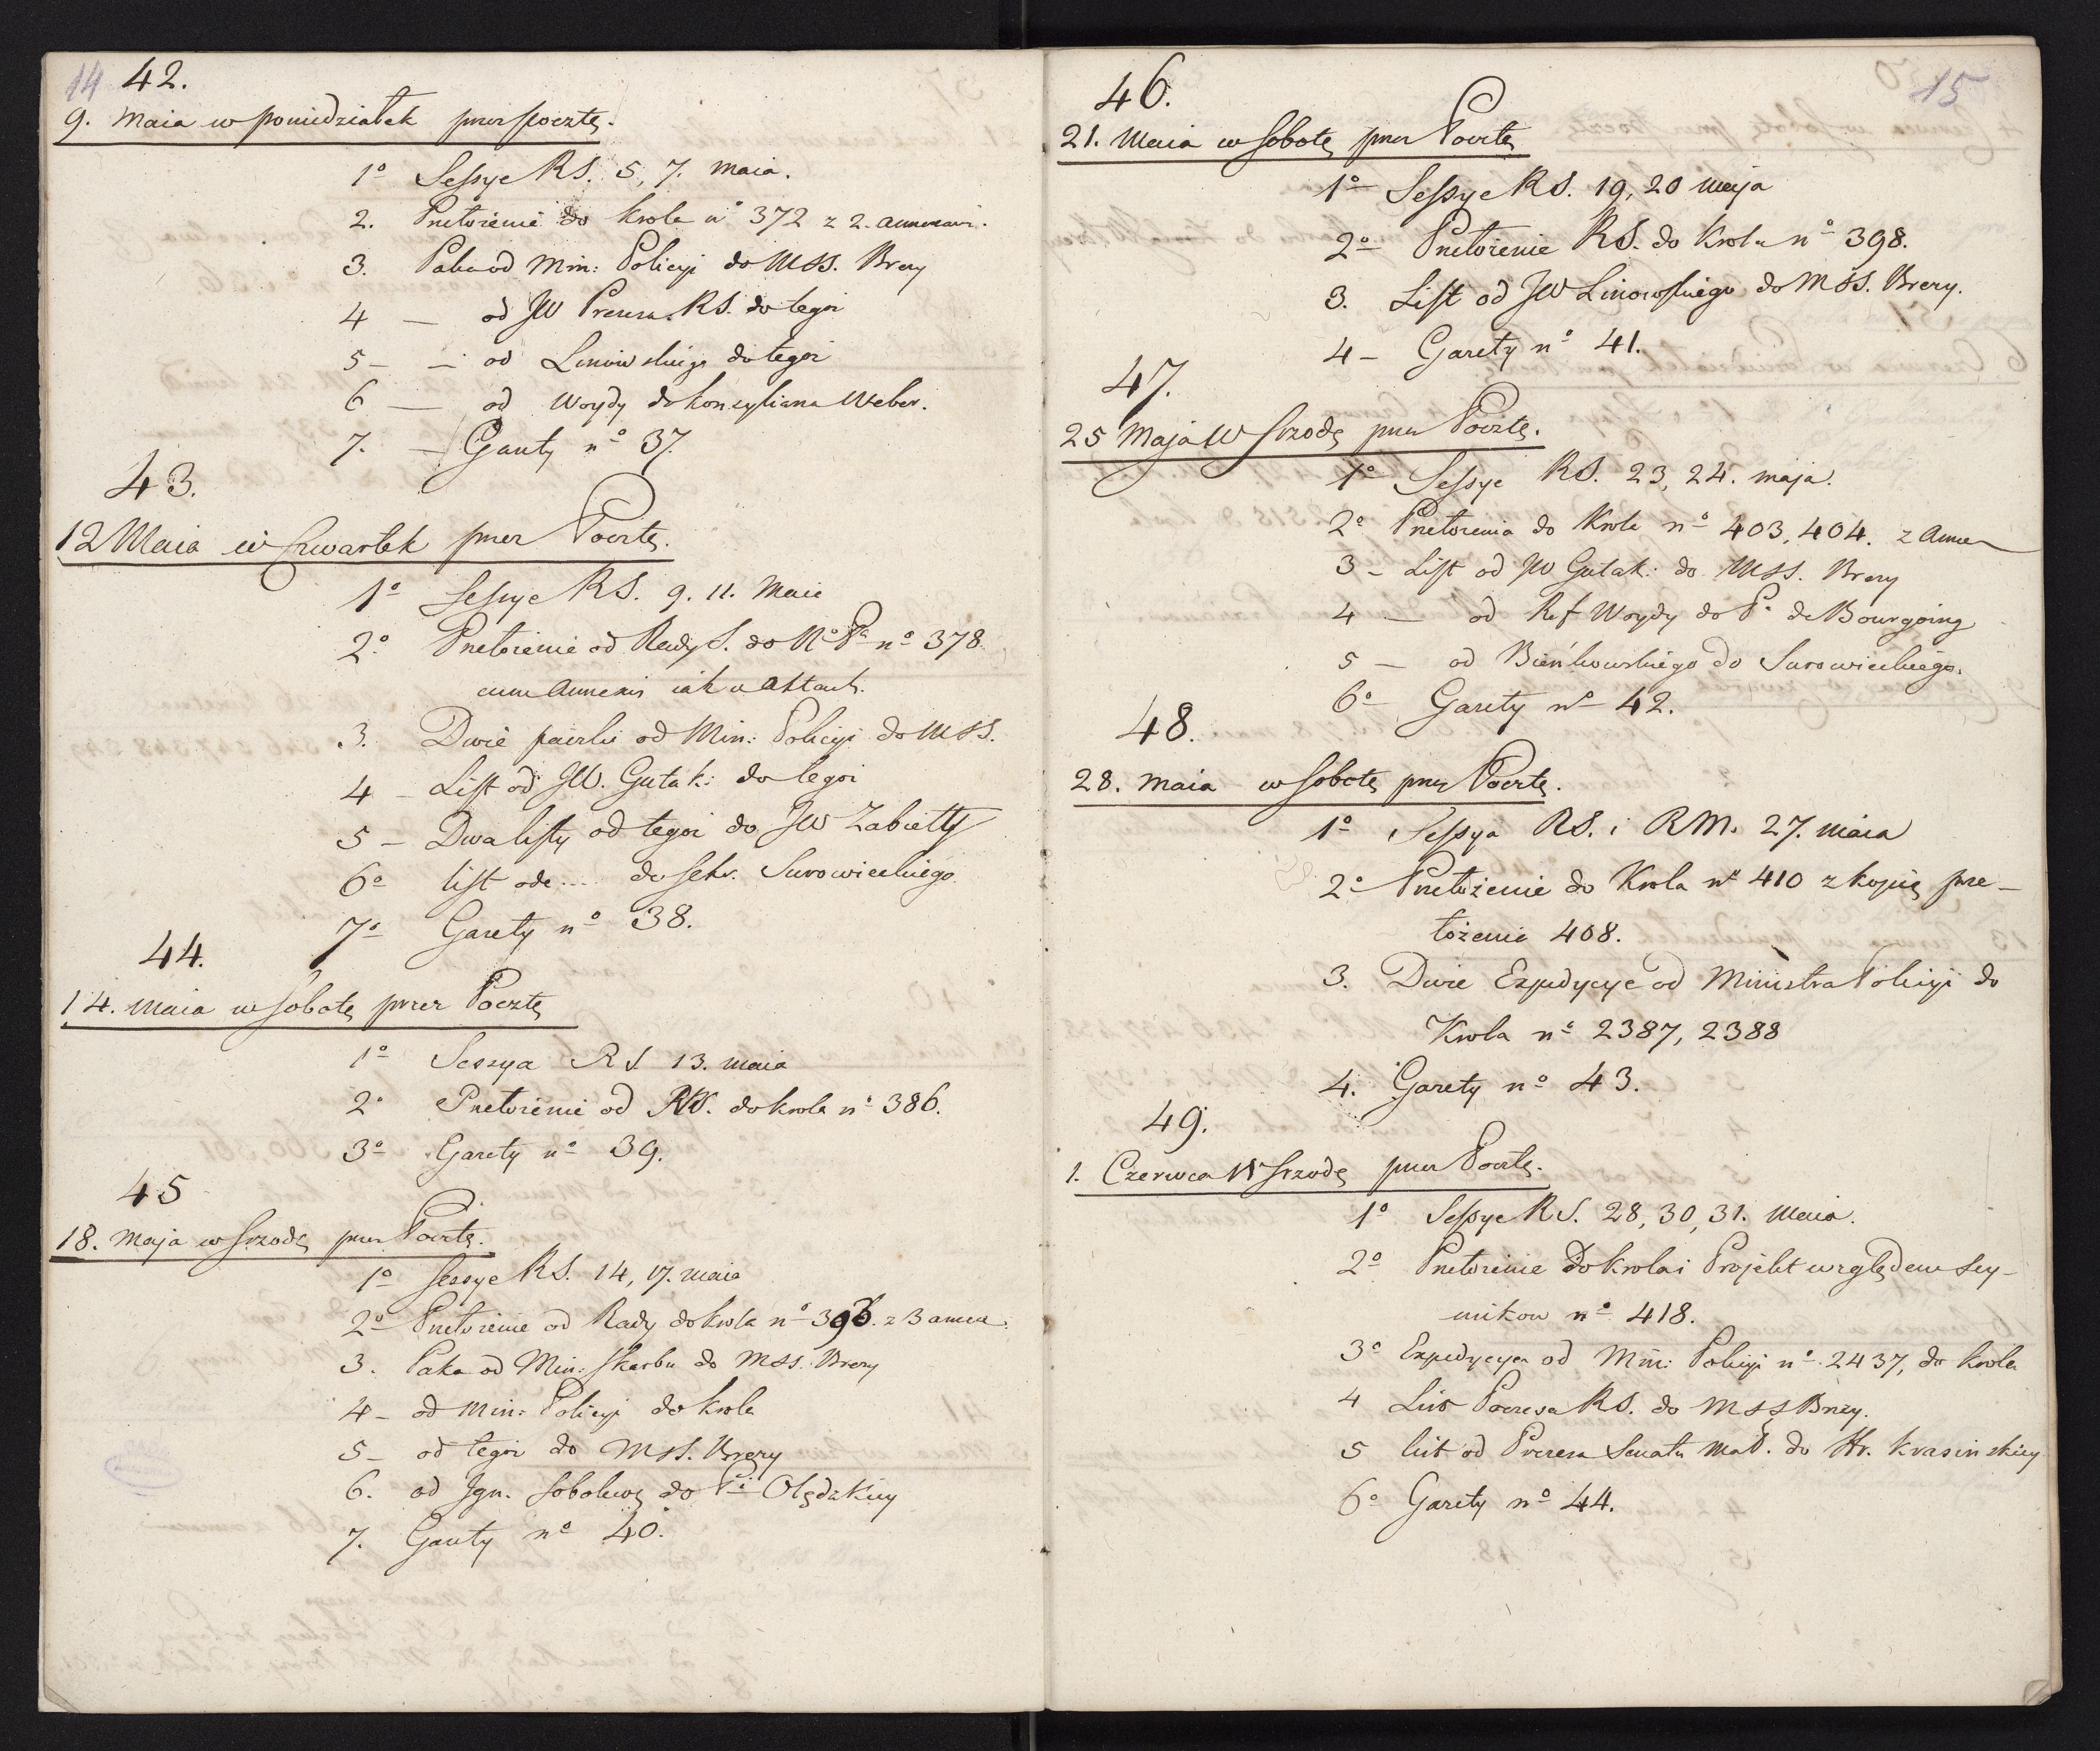 14 42.
9. Maia w poniedziałek przez pocztę.
1º Sessye RS. 5, 7. maia.
2. Przełożenie do Krola nº 372 z 2. annexami.
3. Paka od Min: Policyi do MSS. Brezy
4 — od JW Prezesa RS. do tegoż
5 — — od Linowskiego do tegoż
6 — od Woydy do Konsyliarza Weber.
7. — Gazety nº 37.
43.
12 Maia w Czwartek przez Pocztę.
1º Sessye RS. 9. 11. Maia
2º Przełożenie od Rady S. do Nº Pª nº 378
cum Annexis iak w Aktach.
3. Dwie paczki od Min: Policyi do MSS.
4 — List od JW. Gutak: do tegoż
5 — Dwa listy od tegoż do JW Zabiełły
6º list ode .... do Sekr. Surowieckiego
7º Gazety nº 38.
44.
14. Maia w Sobotę przez Pocztę
1º Sessya RS 13. maia
2º Przełożenie od RS. do krola nº 386.
3º Gazety nº 39.
45
18. Maja w Srzodę przez Pocztę.
1º Sessye RS. 14, 17. maia
2º Przełożenie od Rady do krola nº 393. z 3 annex.
3. Paka od Min: Skarbu do MSS. Brezy
4 — od Min: Policyi do krola
5 — od tegoż do MSS. Brezy
6. od Ign. Sobolews. do Pi Olędzkiey
7. Gazety nº 40.
46. 15
21. Maia w Sobotę przez Pocztę
1º Sessye RS. 19, 20 maja
2º Przełożenie RS. do Krola nº 398.
3. List od JW Linowskiego do MSS. Brezy.
4 — Gazety nº 41.
47.
25 Maja w Srzodę przez Pocztę.
1º Sessye RS. 23, 24. maja.
2º Przełożenia do Krola nº 403, 404. z Annex
3 — List od JW Gutak: do MSS. Brezy
4 — od Ref Woydy do P. de Bourgoing
5 — od Bieńkowskiego do Surowieckiego.
6º Gazety nº 42.
48.
28. Maia w Sobotę przez Pocztę.
1º Sessya RS. i RM. 27. maia
2º Przełożenie do Krola nº 410 z kopią prze-
łożenie 408.
3. Dwie Expedycye od Ministra Policyi do
Krola nº 2387, 2388
4. Gazety nº 43.
49.
1. Czerwca w Srzodę przez Pocztę.
1º Sessye RS. 28, 30, 31. Maia.
2º Przełożenie do Krola i Projekt względem Sey-
mikow nº 418.
3º Expedycya od Min: Policyi nº 2437, do krola
4 List Prezesa RS. do MSS Brezy.
5 list od Prezesa Senatu Mał. do Hr. Krasinskiey
6º Gazety nº 44.